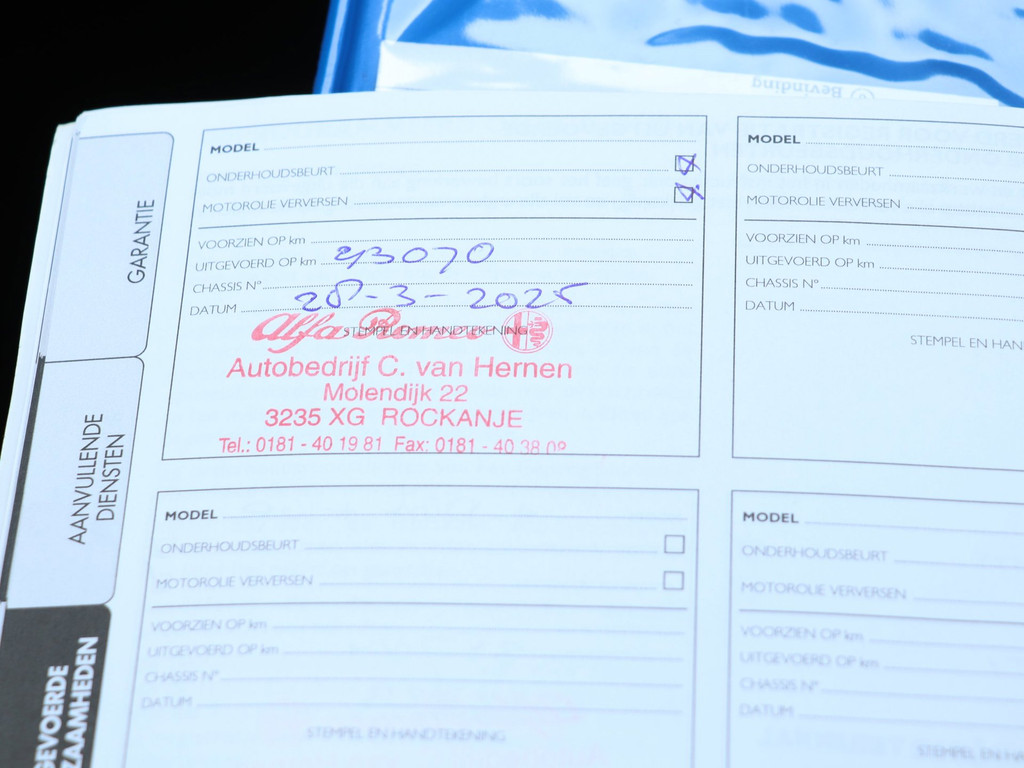 Bevinding
GARANTIE
AANVULLENDE
DIENSTEN
GEVOERDE
ZAAMHEDEN
MODEL
ONDERHOUDSBEURT
MOTOROLIE VERVERSEN
VOORZIEN OP km
UITGEVOERD OP km 43070
CHASSIS N°
DATUM 28-3-2025
STEMPEL EN HANDTEKENING
Alfa Romeo
Autobedrijf C. van Hernen
Molendijk 22
3235 XG ROCKANJE
Tel.: 0181 - 40 19 81 Fax: 0181 - 40 38 09
MODEL
ONDERHOUDSBEURT
MOTOROLIE VERVERSEN
VOORZIEN OP km
UITGEVOERD OP km
CHASSIS N°
DATUM
STEMPEL EN HAN
MODEL
ONDERHOUDSBEURT
MOTOROLIE VERVERSEN
VOORZIEN OP km
UITGEVOERD OP km
CHASSIS N°
DATUM
STEMPEL EN HANDTEKENING
MODEL
ONDERHOUDSBEURT
MOTOROLIE VERVERSEN
VOORZIEN OP km
UITGEVOERD OP km
CHASSIS N°
DATUM
STEMPEL EN HA